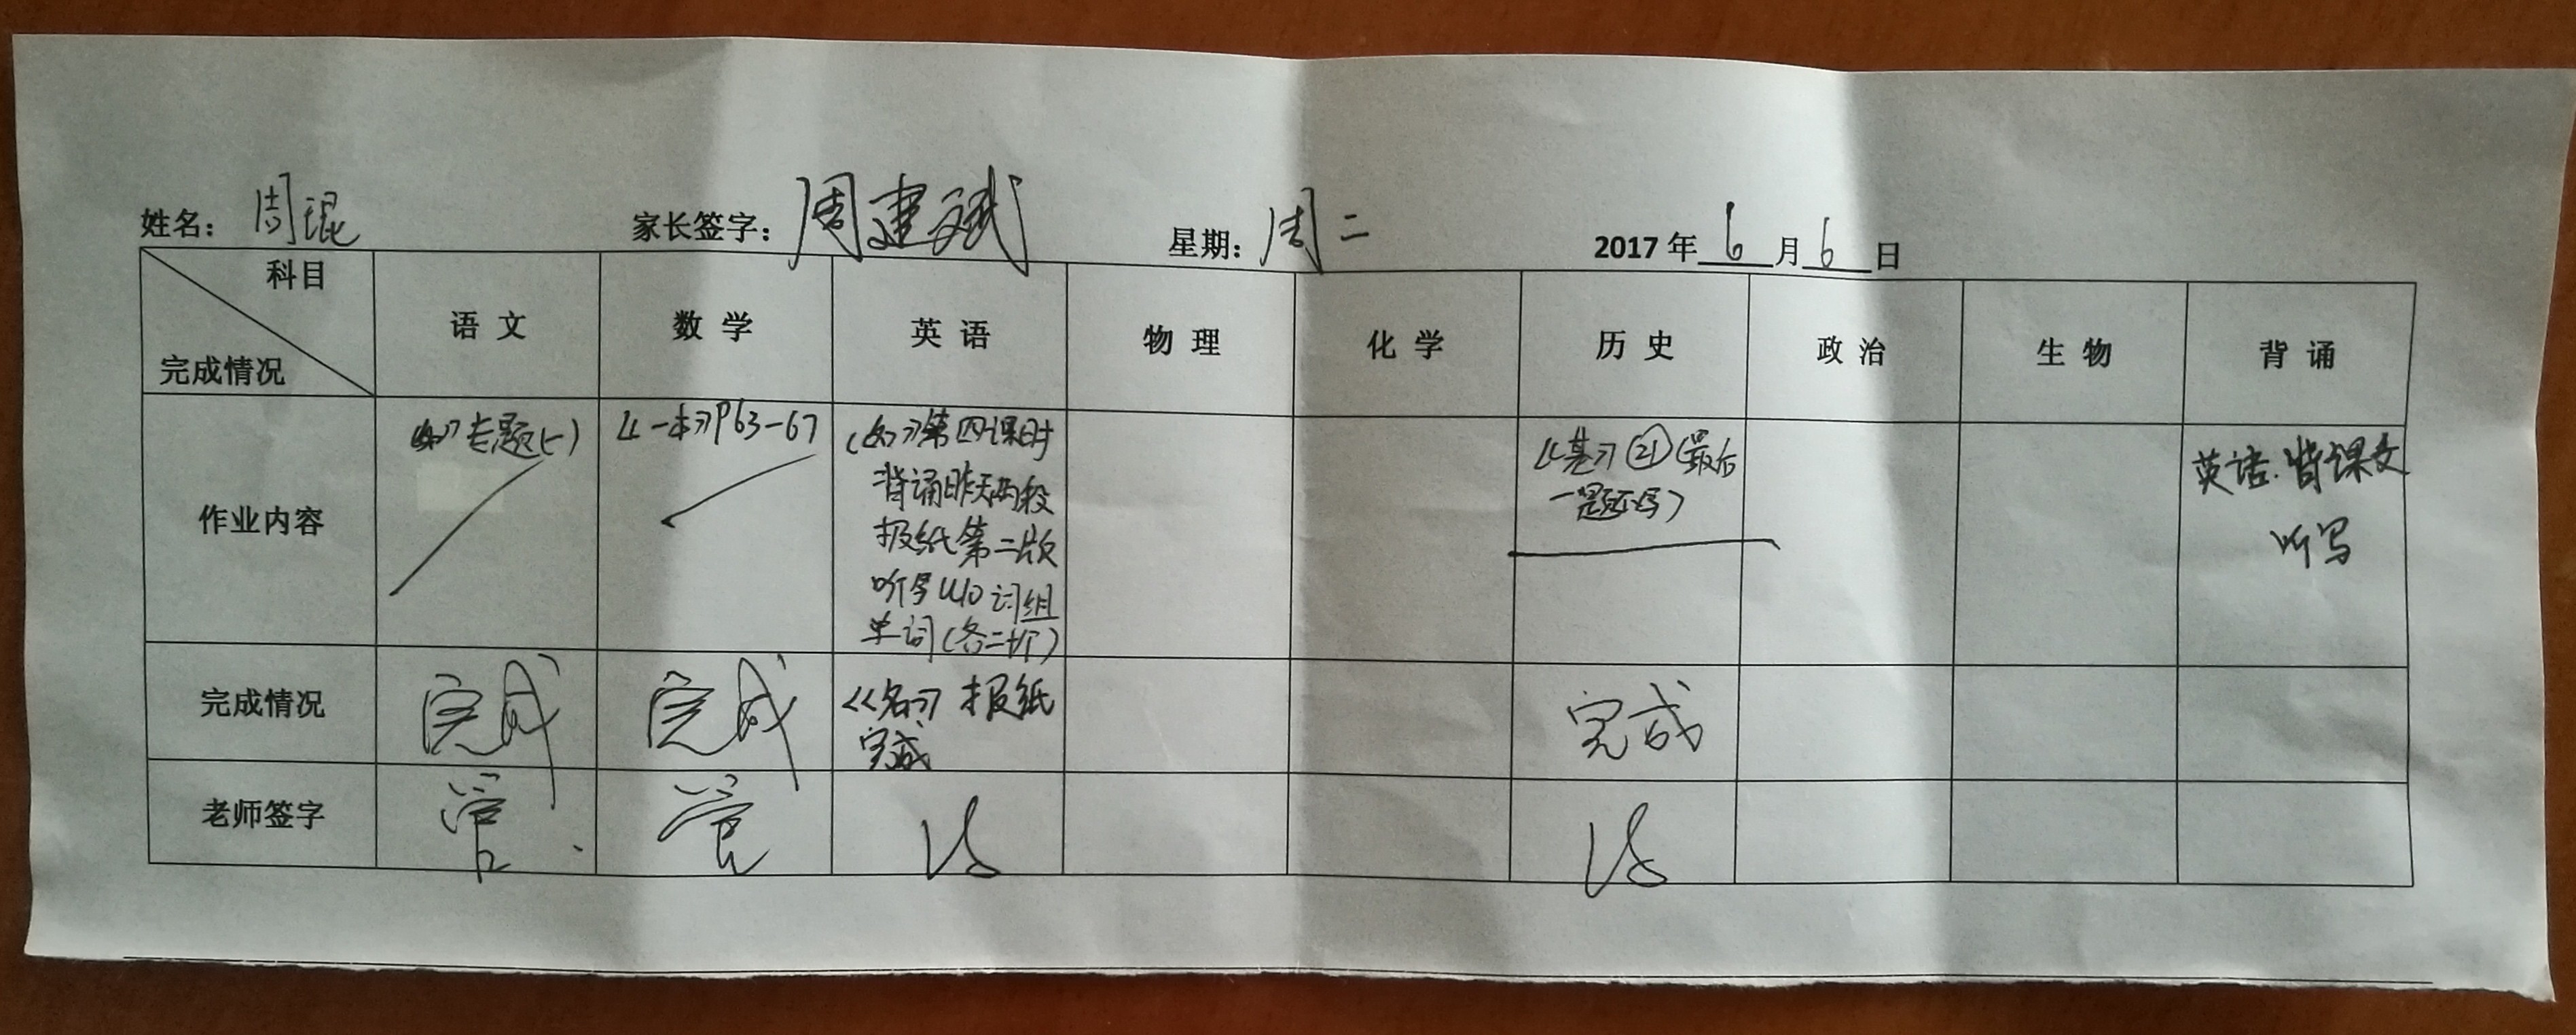 姓名：周琨 家长签字：周建斌 星期：周二 2017年6月6日
科目
完成情况
语文 数学 英语 物理 化学 历史 政治 生物 背诵
作业内容
专题(一)
《一本》P63-67
《名》第四课时
背诵昨天两段
报纸第二版
听写U10词组
单词(各二十个)
《基》㉑(最后
一题不写)
英语.背课文
听写
完成情况
完成
完成
《名》报纸
完成
完成
老师签字
管
管